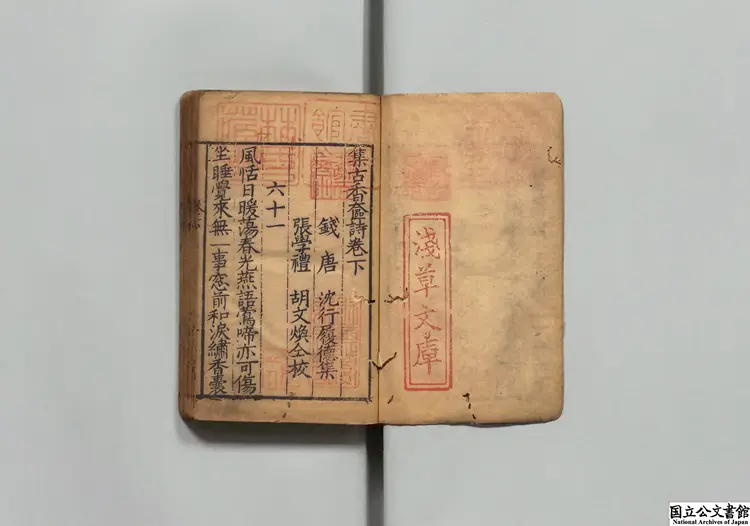 淺草文庫
集古香奩詩卷下
錢唐 沈行履德集
張學禮 胡文煥仝校
六十一
風恬日暖蕩春光燕語鶯啼亦可傷
坐睡覺來無一事窓前和淚繡香囊
国立公文書館
National Archives of Japan